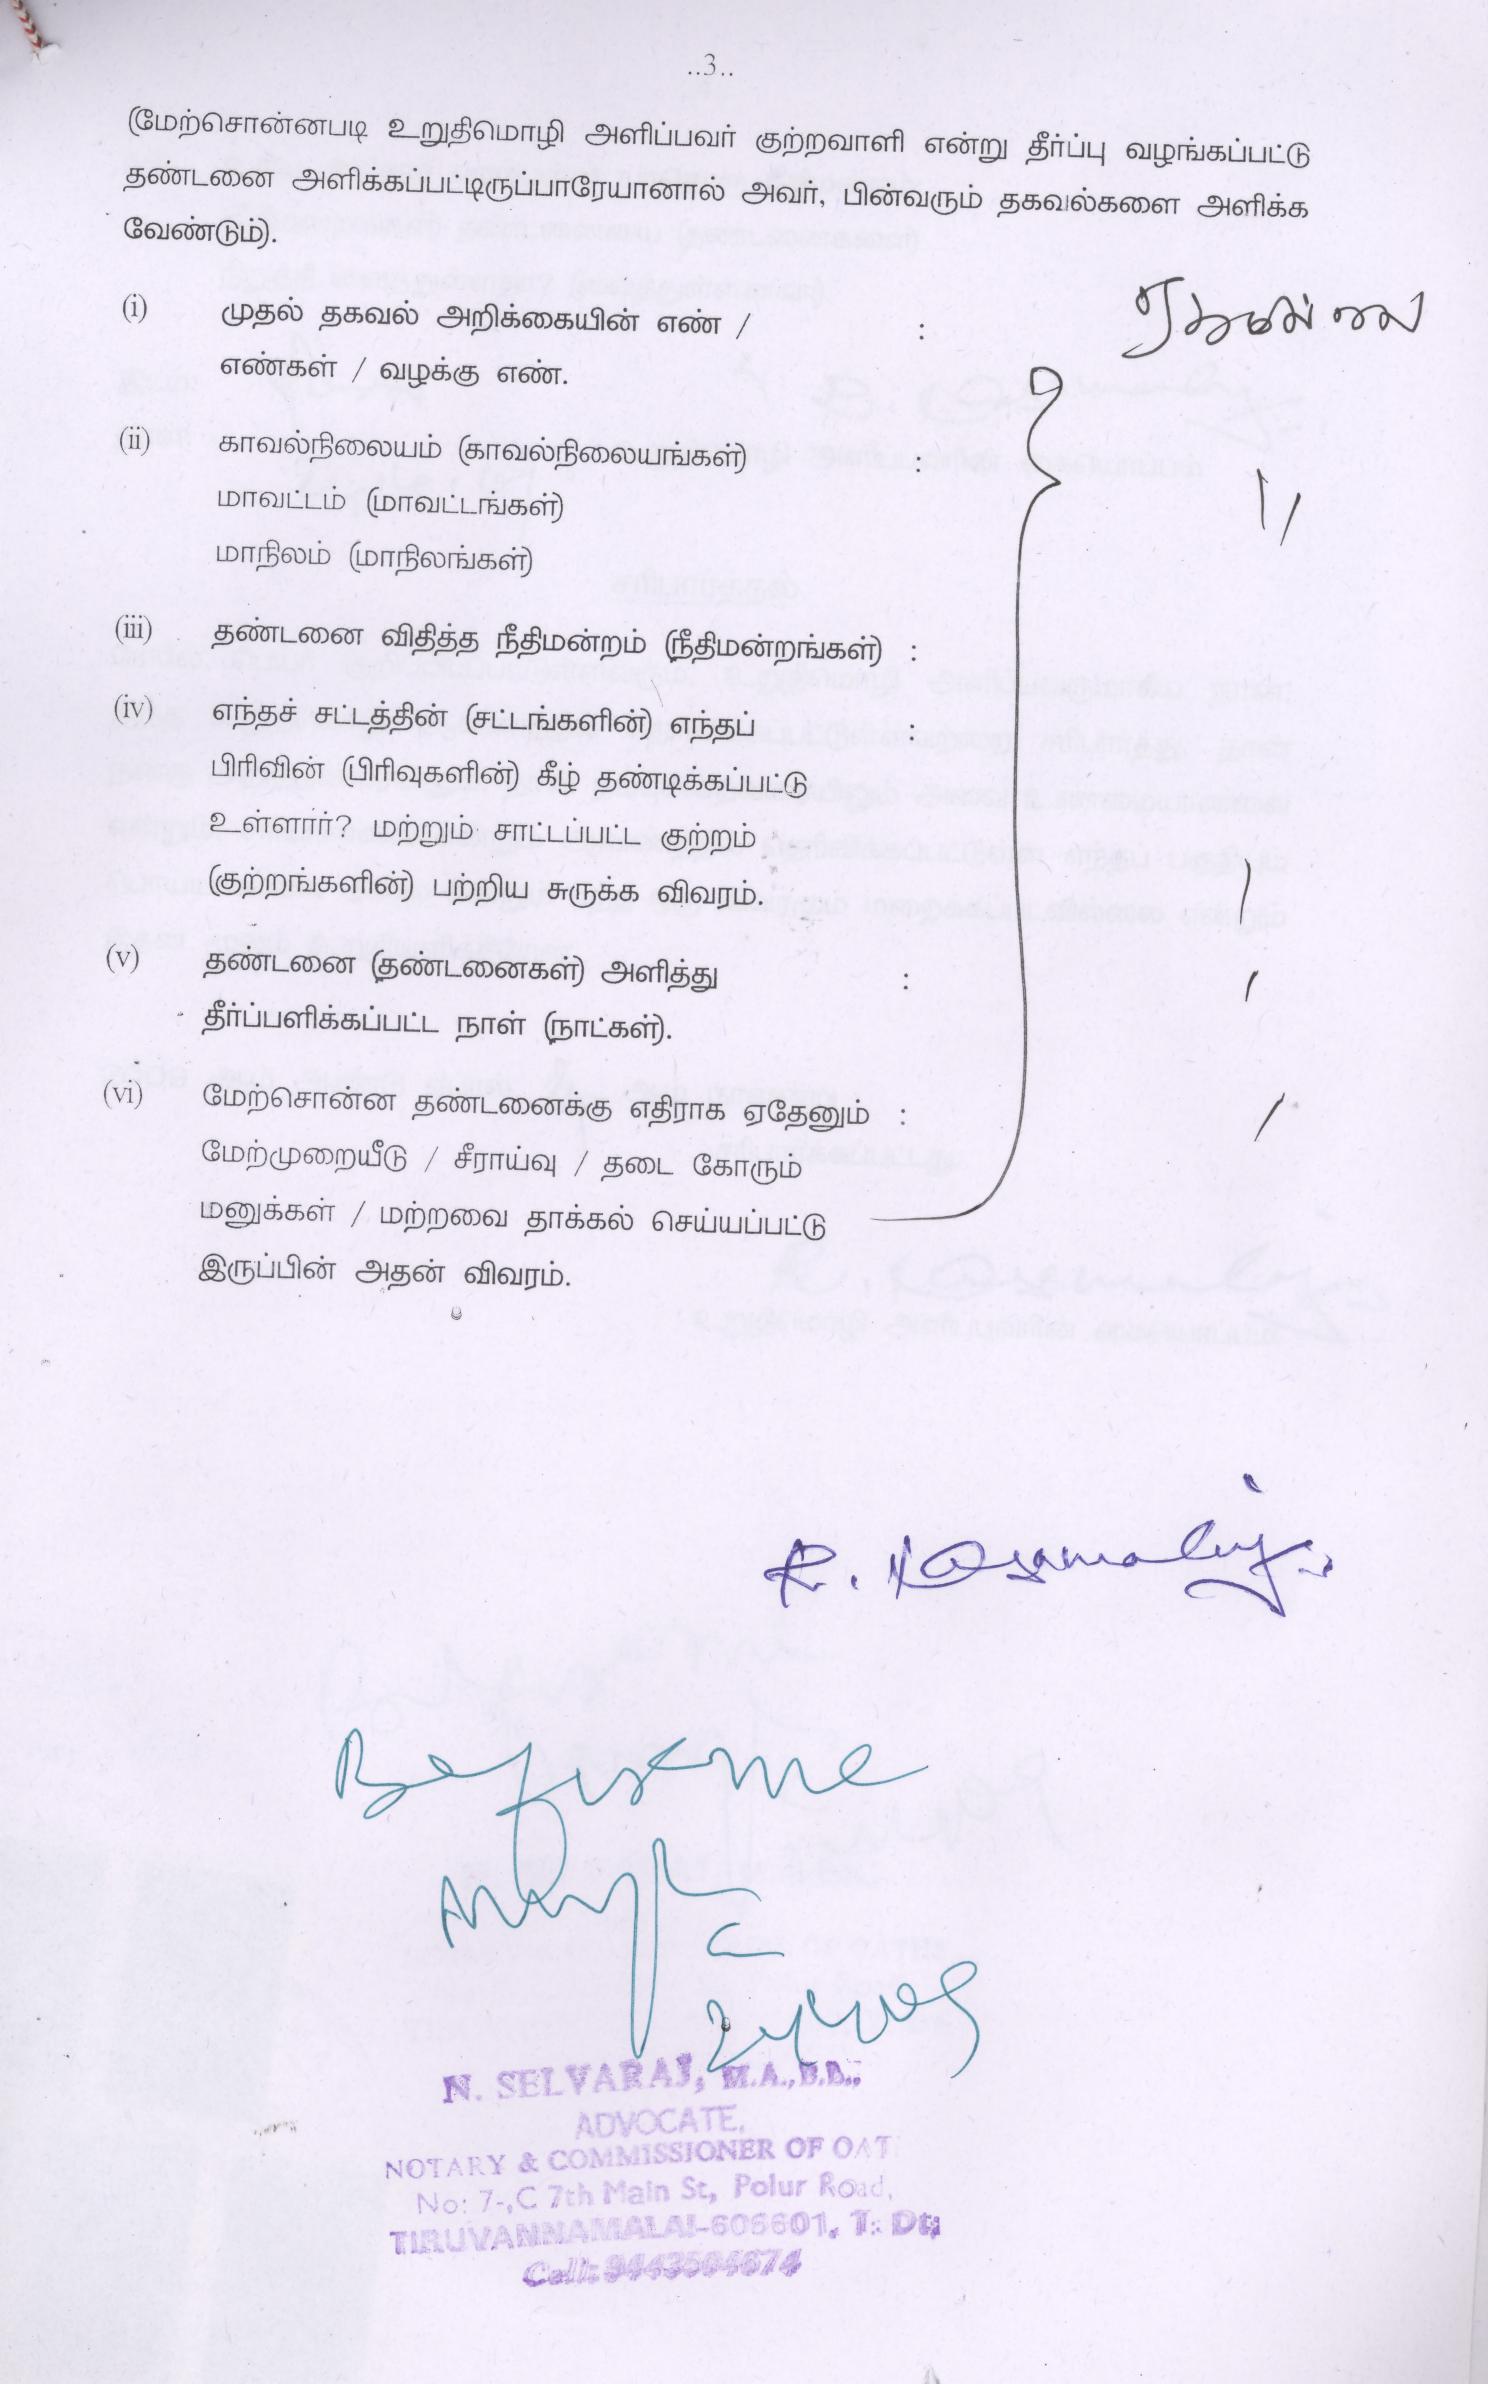 ..3..
(மேற்சொன்னபடி உறுதிமொழி அளிப்பவர் குற்றவாளி என்று தீர்ப்பு வழங்கப்பட்டு
தண்டனை அளிக்கப்பட்டிருப்பாரேயானால் அவர், பின்வரும் தகவல்களை அளிக்க
வேண்டும்).
(i) முதல் தகவல் அறிக்கையின் எண் / :
எண்கள் / வழக்கு எண்.
(ii) காவல்நிலையம் (காவல்நிலையங்கள்) :
மாவட்டம் (மாவட்டங்கள்)
மாநிலம் (மாநிலங்கள்)
(iii) தண்டனை விதித்த நீதிமன்றம் (நீதிமன்றங்கள்) :
(iv) எந்தச் சட்டத்தின் (சட்டங்களின்) எந்தப் :
பிரிவின் (பிரிவுகளின்) கீழ் தண்டிக்கப்பட்டு
உள்ளார்? மற்றும் சாட்டப்பட்ட குற்றம்
(குற்றங்களின்) பற்றிய சுருக்க விவரம்.
(v) தண்டனை (தண்டனைகள்) அளித்து :
தீர்ப்பளிக்கப்பட்ட நாள் (நாட்கள்).
(vi) மேற்சொன்ன தண்டனைக்கு எதிராக ஏதேனும் :
மேற்முறையீடு / சீராய்வு / தடை கோரும்
மனுக்கள் / மற்றவை தாக்கல் செய்யப்பட்டு
இருப்பின் அதன் விவரம்.
Before me
N. SELVARAJ, M.A.,B.L.,
ADVOCATE,
NOTARY & COMMISSIONER OF OAT
No: 7-,C 7th Main St, Polur Road,
TIRUVANNAMALAI-606601. T. Dt,
Cell: 9443504674